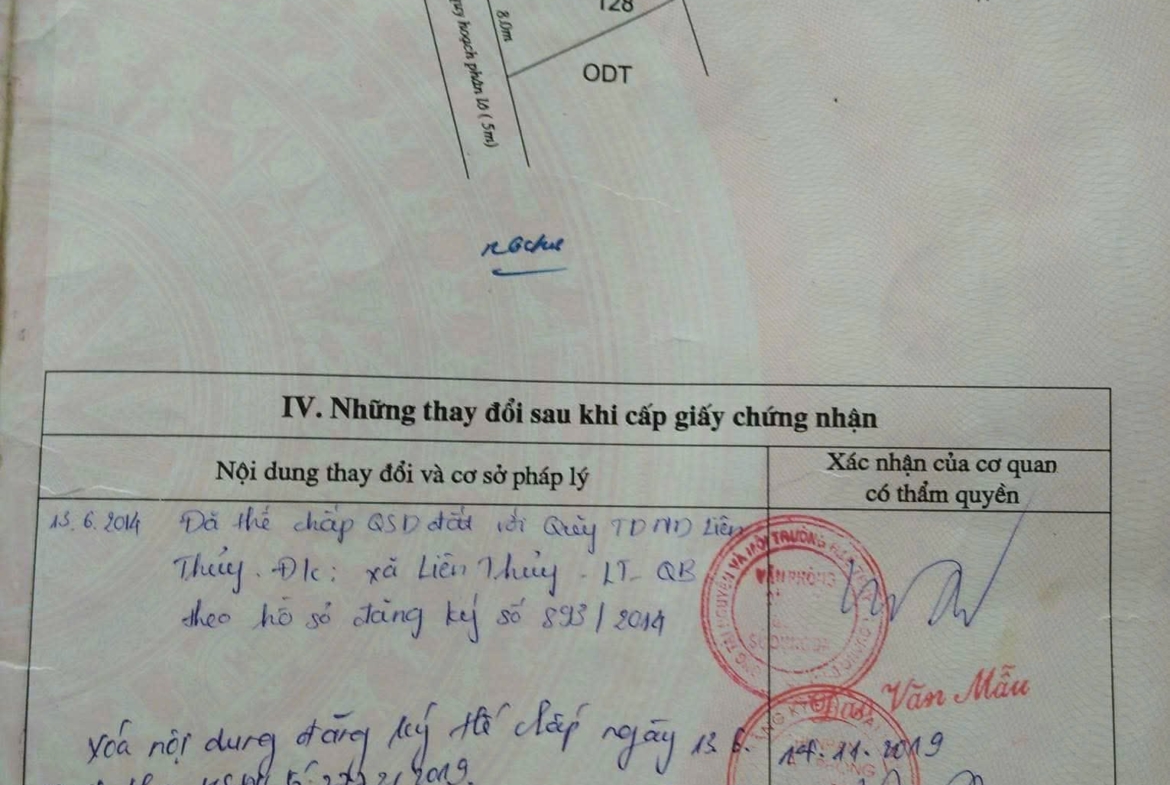 128
8.0m
quy hoạch phân lô ( 5m)
ODT
IV. Những thay đổi sau khi cấp giấy chứng nhận
Nội dung thay đổi và cơ sở pháp lý
Xác nhận của cơ quan
có thẩm quyền
13.6.2014 Đã thế chấp QSD đất với Quỹ TDND Liên
Thủy. Đ/c: xã Liên Thủy - LT- QB
theo hồ sơ đăng ký số 893/2014
VĂN PHÒNG
Văn Mẫu
Xóa nội dung đăng ký thế chấp ngày 13.6.
14.11.2019